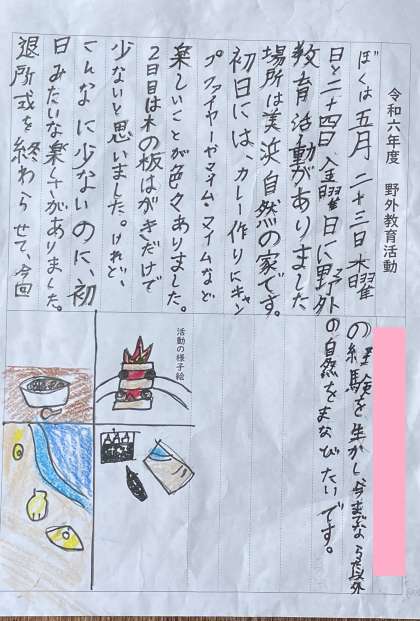 令和六年度　野外教育活動
ぼくは五月二十三日木曜
日と二十四日金曜日に野外
教育活動がありました
場所は美浜自然の家です。
初日には、カレー作りにキャン
プファイヤーやマイム・マイムなど
楽しいことが色々ありました。
2日目は木の板はがきだけで
少ないと思いました。けれど、
こんなに少ないのに、初
日みたいな楽しさがありました。
退所式を終わらせて、今回
の経験を生かし今まで
の自然をまなびたいです。
活動の様子絵